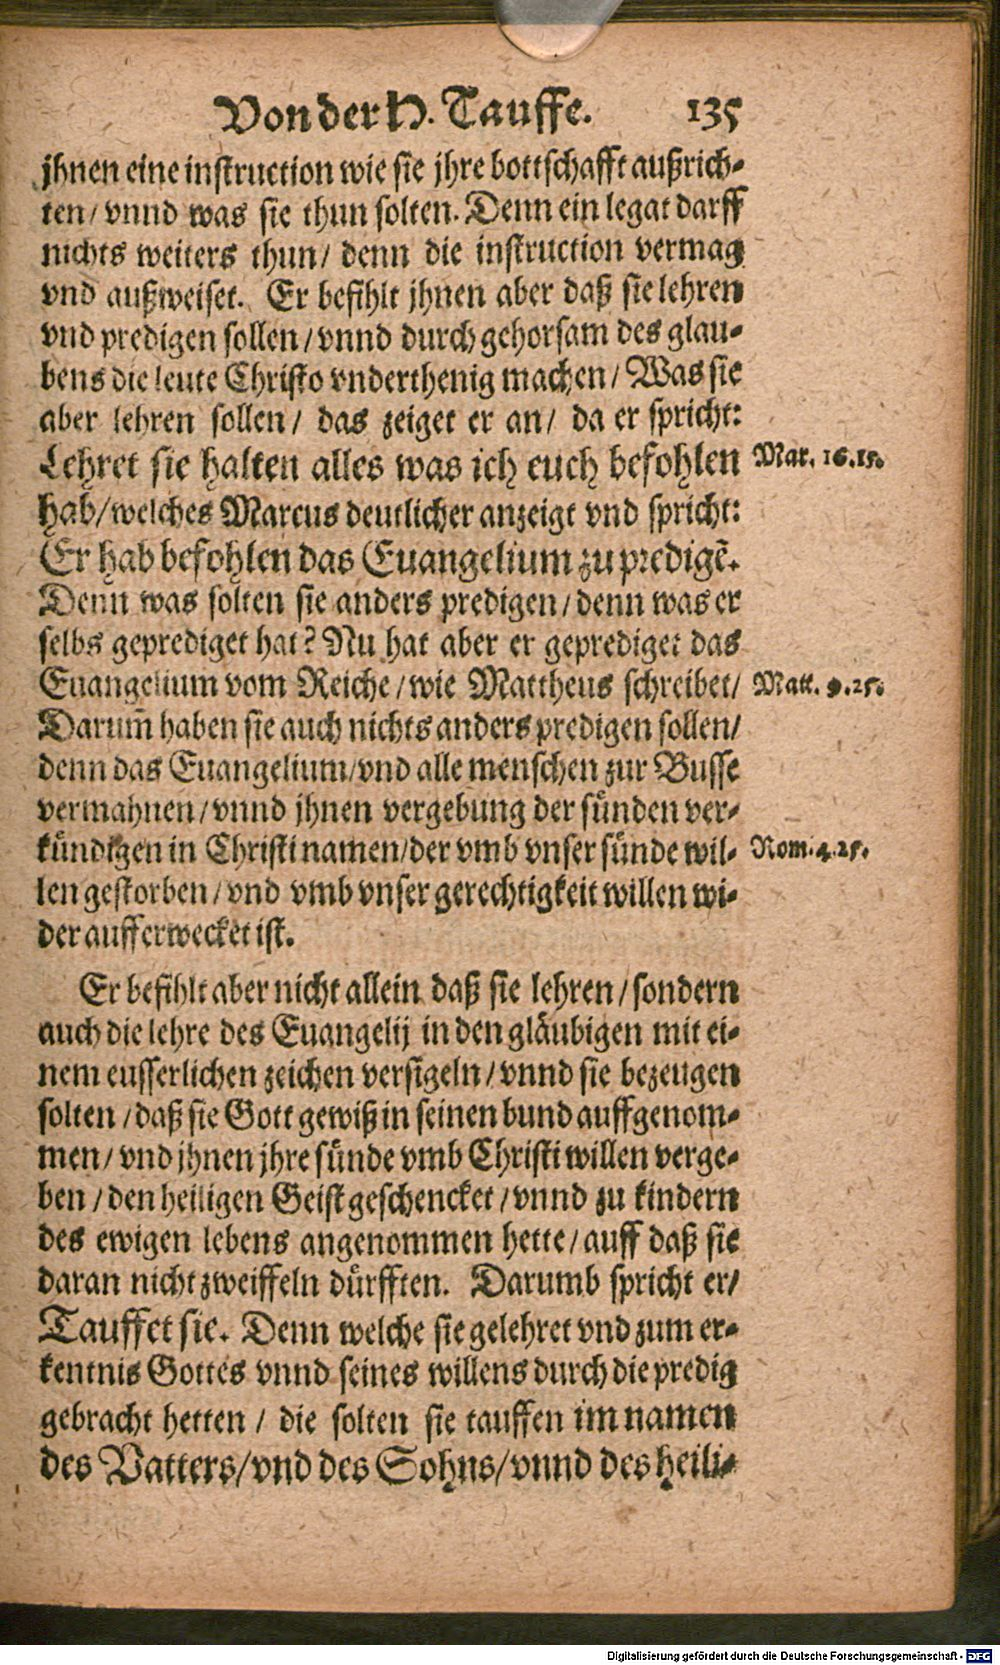 Von der H. Tauffe. 135
jhnen eine instruction wie sie jhre bottschafft außrich-
ten / vnnd was sie thun solten. Denn ein legat darff
nichts weiters thun / denn die instruction vermag
vnd außweiset. Er befihlt jhnen aber daß sie lehren
vnd predigen sollen / vnnd durch gehorsam des glau-
bens die leute Christo vnderthenig machen / Was sie
aber lehren sollen / das zeiget er an / da er spricht:
Lehret sie halten alles was ich euch befohlen
Mar. 16.15.
hab / welches Marcus deutlicher anzeigt vnd spricht:
Er hab befohlen das Euangelium zu predigẽ.
Denn was solten sie anders predigen / denn was er
selbs geprediget hat? Nu hat aber er geprediget das
Euangelium vom Reiche / wie Mattheus schreibet /
Matt. 9.25.
Darum̃ haben sie auch nichts anders predigen sollen /
denn das Euangelium / vnd alle menschen zur Busse
vermahnen / vnnd jhnen vergebung der sünden ver-
kündigen in Christi namen / der vmb vnser sünde wil-
Rom. 4.25.
len gestorben / vnd vmb vnser gerechtigkeit willen wi-
der aufferwecket ist.
Er befihlt aber nicht allein daß sie lehren / sondern
auch die lehre des Euangelij in den gläubigen mit ei-
nem eusserlichen zeichen versigeln / vnnd sie bezeugen
solten / daß sie Gott gewiß in seinen bund auffgenom-
men / vnd jhnen jhre sünde vmb Christi willen verge-
ben / den heiligen Geist geschencket / vnnd zu kindern
des ewigen lebens angenommen hette / auff daß sie
daran nicht zweiffeln dürfften. Darumb spricht er /
Tauffet sie. Denn welche sie gelehret vnd zum er-
kentnis Gottes vnnd seines willens durch die predig
gebracht hetten / die solten sie tauffen im namen
des Vatters / vnd des Sohns / vnnd des heili-
Digitalisierung gefördert durch die Deutsche Forschungsgemeinschaft - DFG